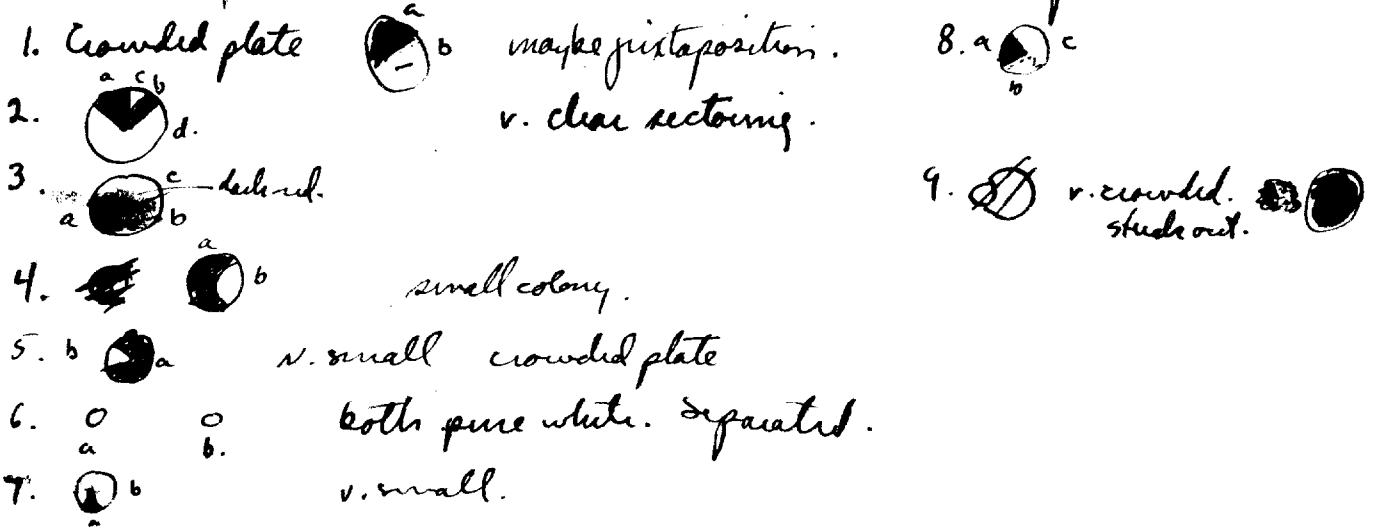 1. Crowded plate a b maybe juxtaposition.
2. a c b d. v. clear sectoring.
3. a c b dark red.
4. a b small colony.
5. b a v. small crowded plate
6. a b. both pure white. Separated.
7. b a v. small.
8. a b c
9. v. crowded.
streak out.